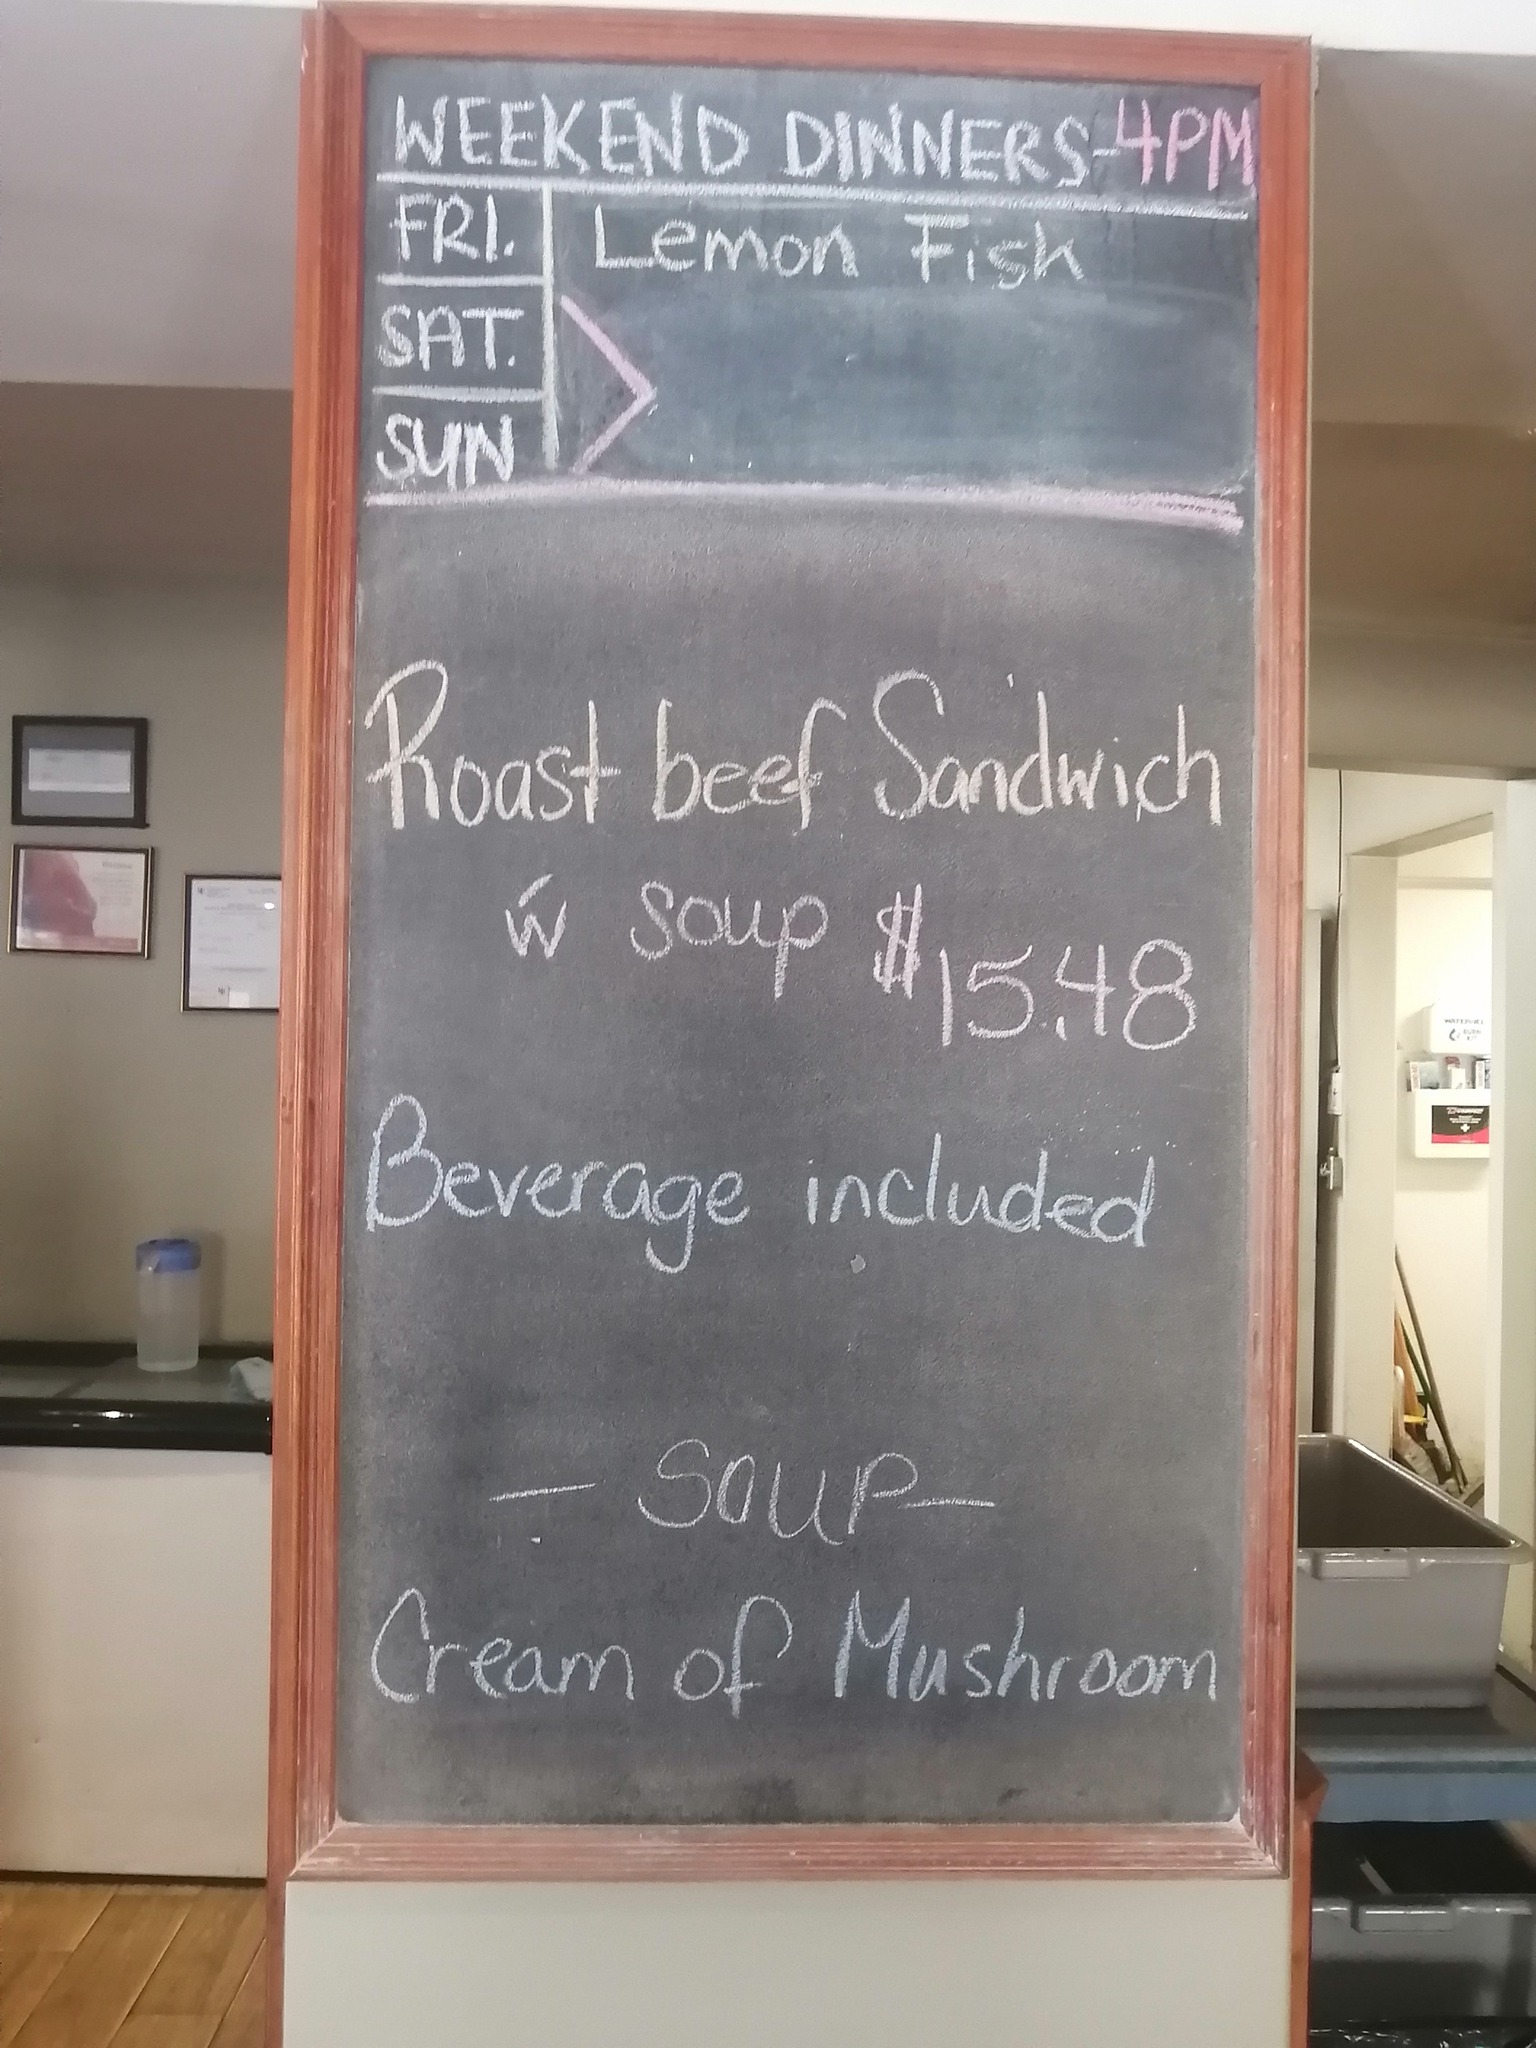 WEEKEND DINNERS-4PM
FRI. Lemon Fish
SAT.
SUN
Roast beef Sandwich
w soup $15.48
Beverage included
- SOUP-
Cream of Mushroom
WATERJEL
BURN
KIT